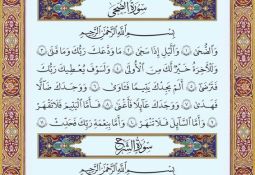 سُورَةُ الضُّحَىٰ
بِسْمِ اللَّهِ الرَّحْمَٰنِ الرَّحِيمِ
وَالضُّحَىٰ ۝١ وَاللَّيْلِ إِذَا سَجَىٰ ۝٢ مَا وَدَّعَكَ رَبُّكَ وَمَا قَلَىٰ ۝٣
وَلَلْآخِرَةُ خَيْرٌ لَّكَ مِنَ الْأُولَىٰ ۝٤ وَلَسَوْفَ يُعْطِيكَ رَبُّكَ
فَتَرْضَىٰ ۝٥ أَلَمْ يَجِدْكَ يَتِيمًا فَآوَىٰ ۝٦ وَوَجَدَكَ ضَالًّا
فَهَدَىٰ ۝٧ وَوَجَدَكَ عَائِلًا فَأَغْنَىٰ ۝٨ فَأَمَّا الْيَتِيمَ فَلَا تَقْهَرْ
۝٩ وَأَمَّا السَّائِلَ فَلَا تَنْهَرْ ۝١٠ وَأَمَّا بِنِعْمَةِ رَبِّكَ فَحَدِّثْ ۝١١
سُورَةُ الشَّرْحِ
بِسْمِ اللَّهِ الرَّحْمَٰنِ الرَّحِيمِ